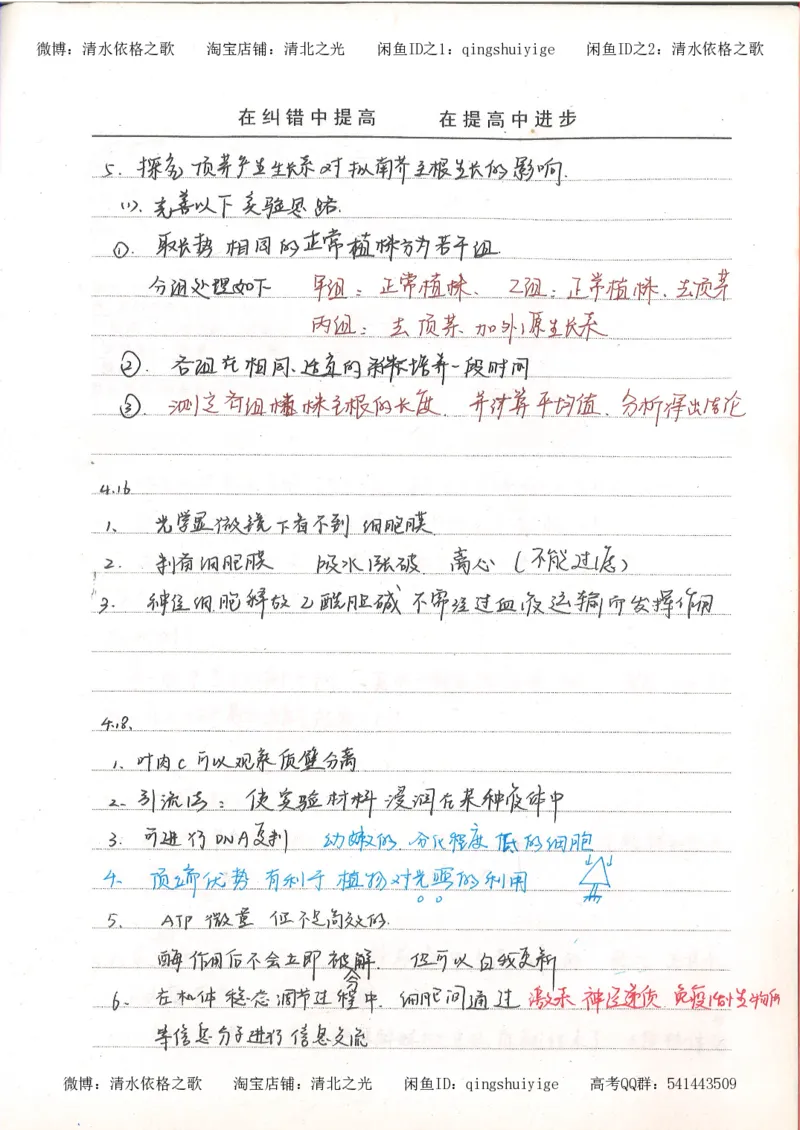 微博：清水依格之歌 淘宝店铺：清北之光 闲鱼ID之1：qingshuiyige 闲鱼ID之2：清水依格之歌
在纠错中提高 在提高中进步
5. 探究顶芽产生生长素对拟南芥主根生长的影响.
(1). 完善以下实验思路.
①. 取长势相同的正常植株分为若干组.
分组处理如下 甲组：正常植株、 乙组：正常植株、去顶芽
丙组：去顶芽、加外源生长素
②. 各组在相同、适宜的条件培养一段时间
③. 测定各组植株主根的长度. 并计算平均值. 分析得出结论
4.16
1、 光学显微镜下看不到细胞膜.
2. 制备细胞膜 吸水涨破. 离心 (不能过滤)
3. 神经细胞释放乙酰胆碱不需经过血液运输而发挥作用
4.18.
1. 叶肉C可以观察质壁分离
2. 引流法：使实验材料浸润在某种液体中
3. 可进行DNA复制 幼嫩的、分化程度低的细胞
4. 顶端优势有利于植物对光照的利用
5. ATP 微量 但不是高效的.
酶作用后不会立即被分解. 但可以自我更新
6. 在机体稳态调节过程中. 细胞间通过激素 神经递质 免疫活性物质
等信息分子进行信息交流
微博：清水依格之歌 淘宝店铺：清北之光 闲鱼ID：qingshuiyige 高考QQ群：541443509